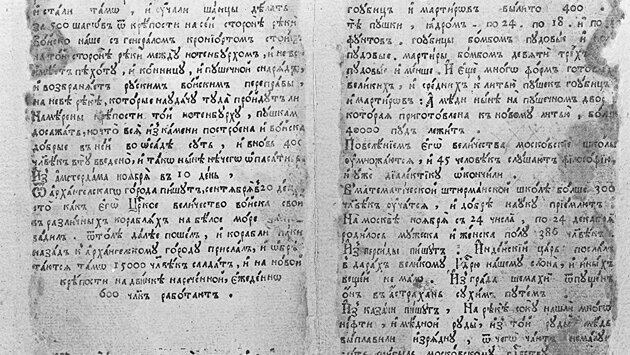 и стали тамъ, и ѹчали шанцы дѣлать
за 500 шаговъ ѿ крѣпости на сеи сторонѣ рѣки
воиско наше съ генераломъ кроніортомъ стоитъ
на тои сторонѣ рѣки между нотенбурхомъ, и невы
имѣетъ пѣхоту, и конницу, и пушечнои снарядъ,
и возбраняетъ рускимъ воискимъ переправы,
на невѣ рѣкѣ, которые наѹдачу туда проидутъ ли
Намѣрены крѣпости тои нотенбурху, пушкам
досажать, но что вся изъ камени построена и воиска
добрые в неи во ѡсадѣ суть, и вновь 400
члвѣкъ вту введено, и такѡ нынѣ нечегѡ ѡпасатися
Из амстердама ноября въ 10 день,
Ѿ архангельскагѡ города пишутъ, сентября въ 20 день,
что какъ егѡ Црское величество воиска свои
въ различныхъ корабляхъ на бѣлое море
вадилъ ѿтолѣ далѣе пошелъ, и корабли паки
назадъ къ архангельскому городу прислалъ, и ѡбрѣ
таются тамѡ 15000 члвѣкъ салдатъ, и на новои
крѣпости на двинкѣ нареченнои, ежеденнѡ
600 члкъ работаютъ.
гоубицъ и мартировъ вылито 400
тѣ пушки, ядромъ по 24, по 18 и по
фунтовъ. гоубицы бомбомъ пудовые и
пудовые. мартиры бомбомъ девяти трехъ
пудовые и менше. И еще многѡ формъ готовыхъ
великихъ, и среднихъ к литью пушекъ гоубицъ
и мартировъ: А мѣди нынѣ на пушечномъ дворѣ,
которая приготовлена к новому литью, болши
40000 пудъ лежитъ.
Повелѣніемъ Егѡ величества московские школы
ѹмножаются, и 45 человѣкъ слушаютъ философію
и уже діалектику ѡкончили.
В математической штюрманской школѣ болше 300
члвѣкъ ѹчатся, и добрѣ науку пріемлютъ.
На москвѣ ноября съ 24 числа, по 24 декабря
родилось мужеска и женска полу 386 члвѣкъ.
Из персиды пишутъ. Индѣйскіи царь послалъ
в дарахъ великому Царю нашему слона, и иныхъ
вещеи не малѡ. Из града шемахи ѿпущенъ
онъ въ астрахань сухимъ путемъ.
Из казани пишутъ, На рѣкѣ соку нашли многѡ
нефти, и мѣднои руды, из тои руды мѣдь
выплавили изрядну, ѿ чегѡ чаютъ немалую